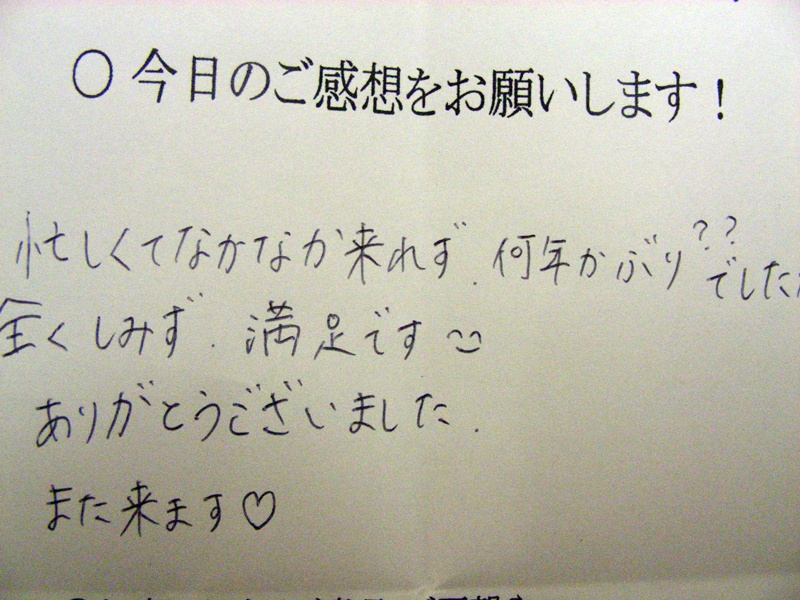 ○今日のご感想をお願いします！
忙しくてなかなか来れず.何年かぶり??でしたが
全くしみず.満足です
ありがとうございました.
また来ます♡